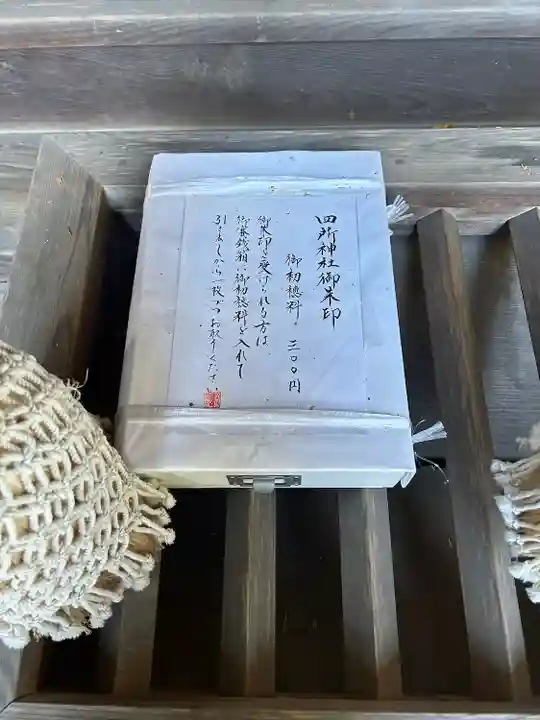 四所神社御朱印
御初穂料。三〇〇円
御朱印を受けられる方は、
御賽銭箱に御初穂料を入れて
引き出しから一枚づつお取り下さい